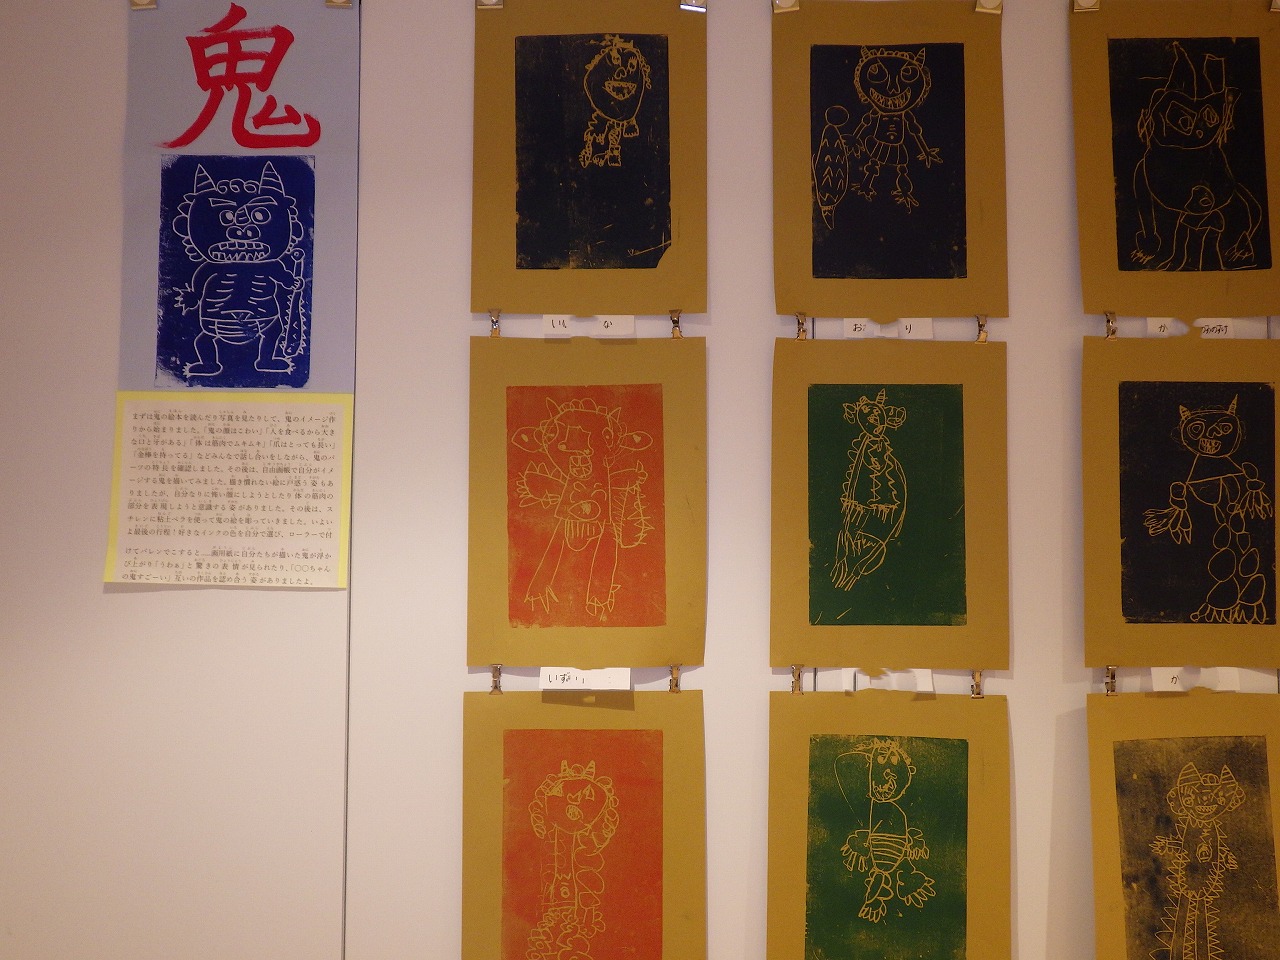 鬼
まずは鬼の絵本を読んだり写真を見たりして、鬼のイメージ作
りから始まりました。「鬼の顔はこわい」「人を食べるから大き
な口と牙がある」「体は筋肉でムキムキ」「爪はとっても長い」
「金棒を持ってる」などみんなで話し合いをしながら、鬼のパ
ーツの特長を確認しました。その後は、自由画帳で自分がイメ
ージする鬼を描いてみました。描き慣れない絵に戸惑う姿もあ
りましたが、自分なりに怖い顔にしようとしたり体の筋肉の
部分を表現しようと意識する姿がありました。その後は、ス
チレンに粘土ベラを使って鬼の絵を彫っていきました。いよい
よ最後の行程！好きなインクの色を自分で選び、ローラーで付
けてバレンでこすると…画用紙に自分たちが描いた鬼が浮か
び上がり「うわぁ」と驚きの表情が見られたり、「〇〇ちゃん
の鬼すごーい」互いの作品を認め合う姿がありましたよ。
い な
お り
か
いず
か